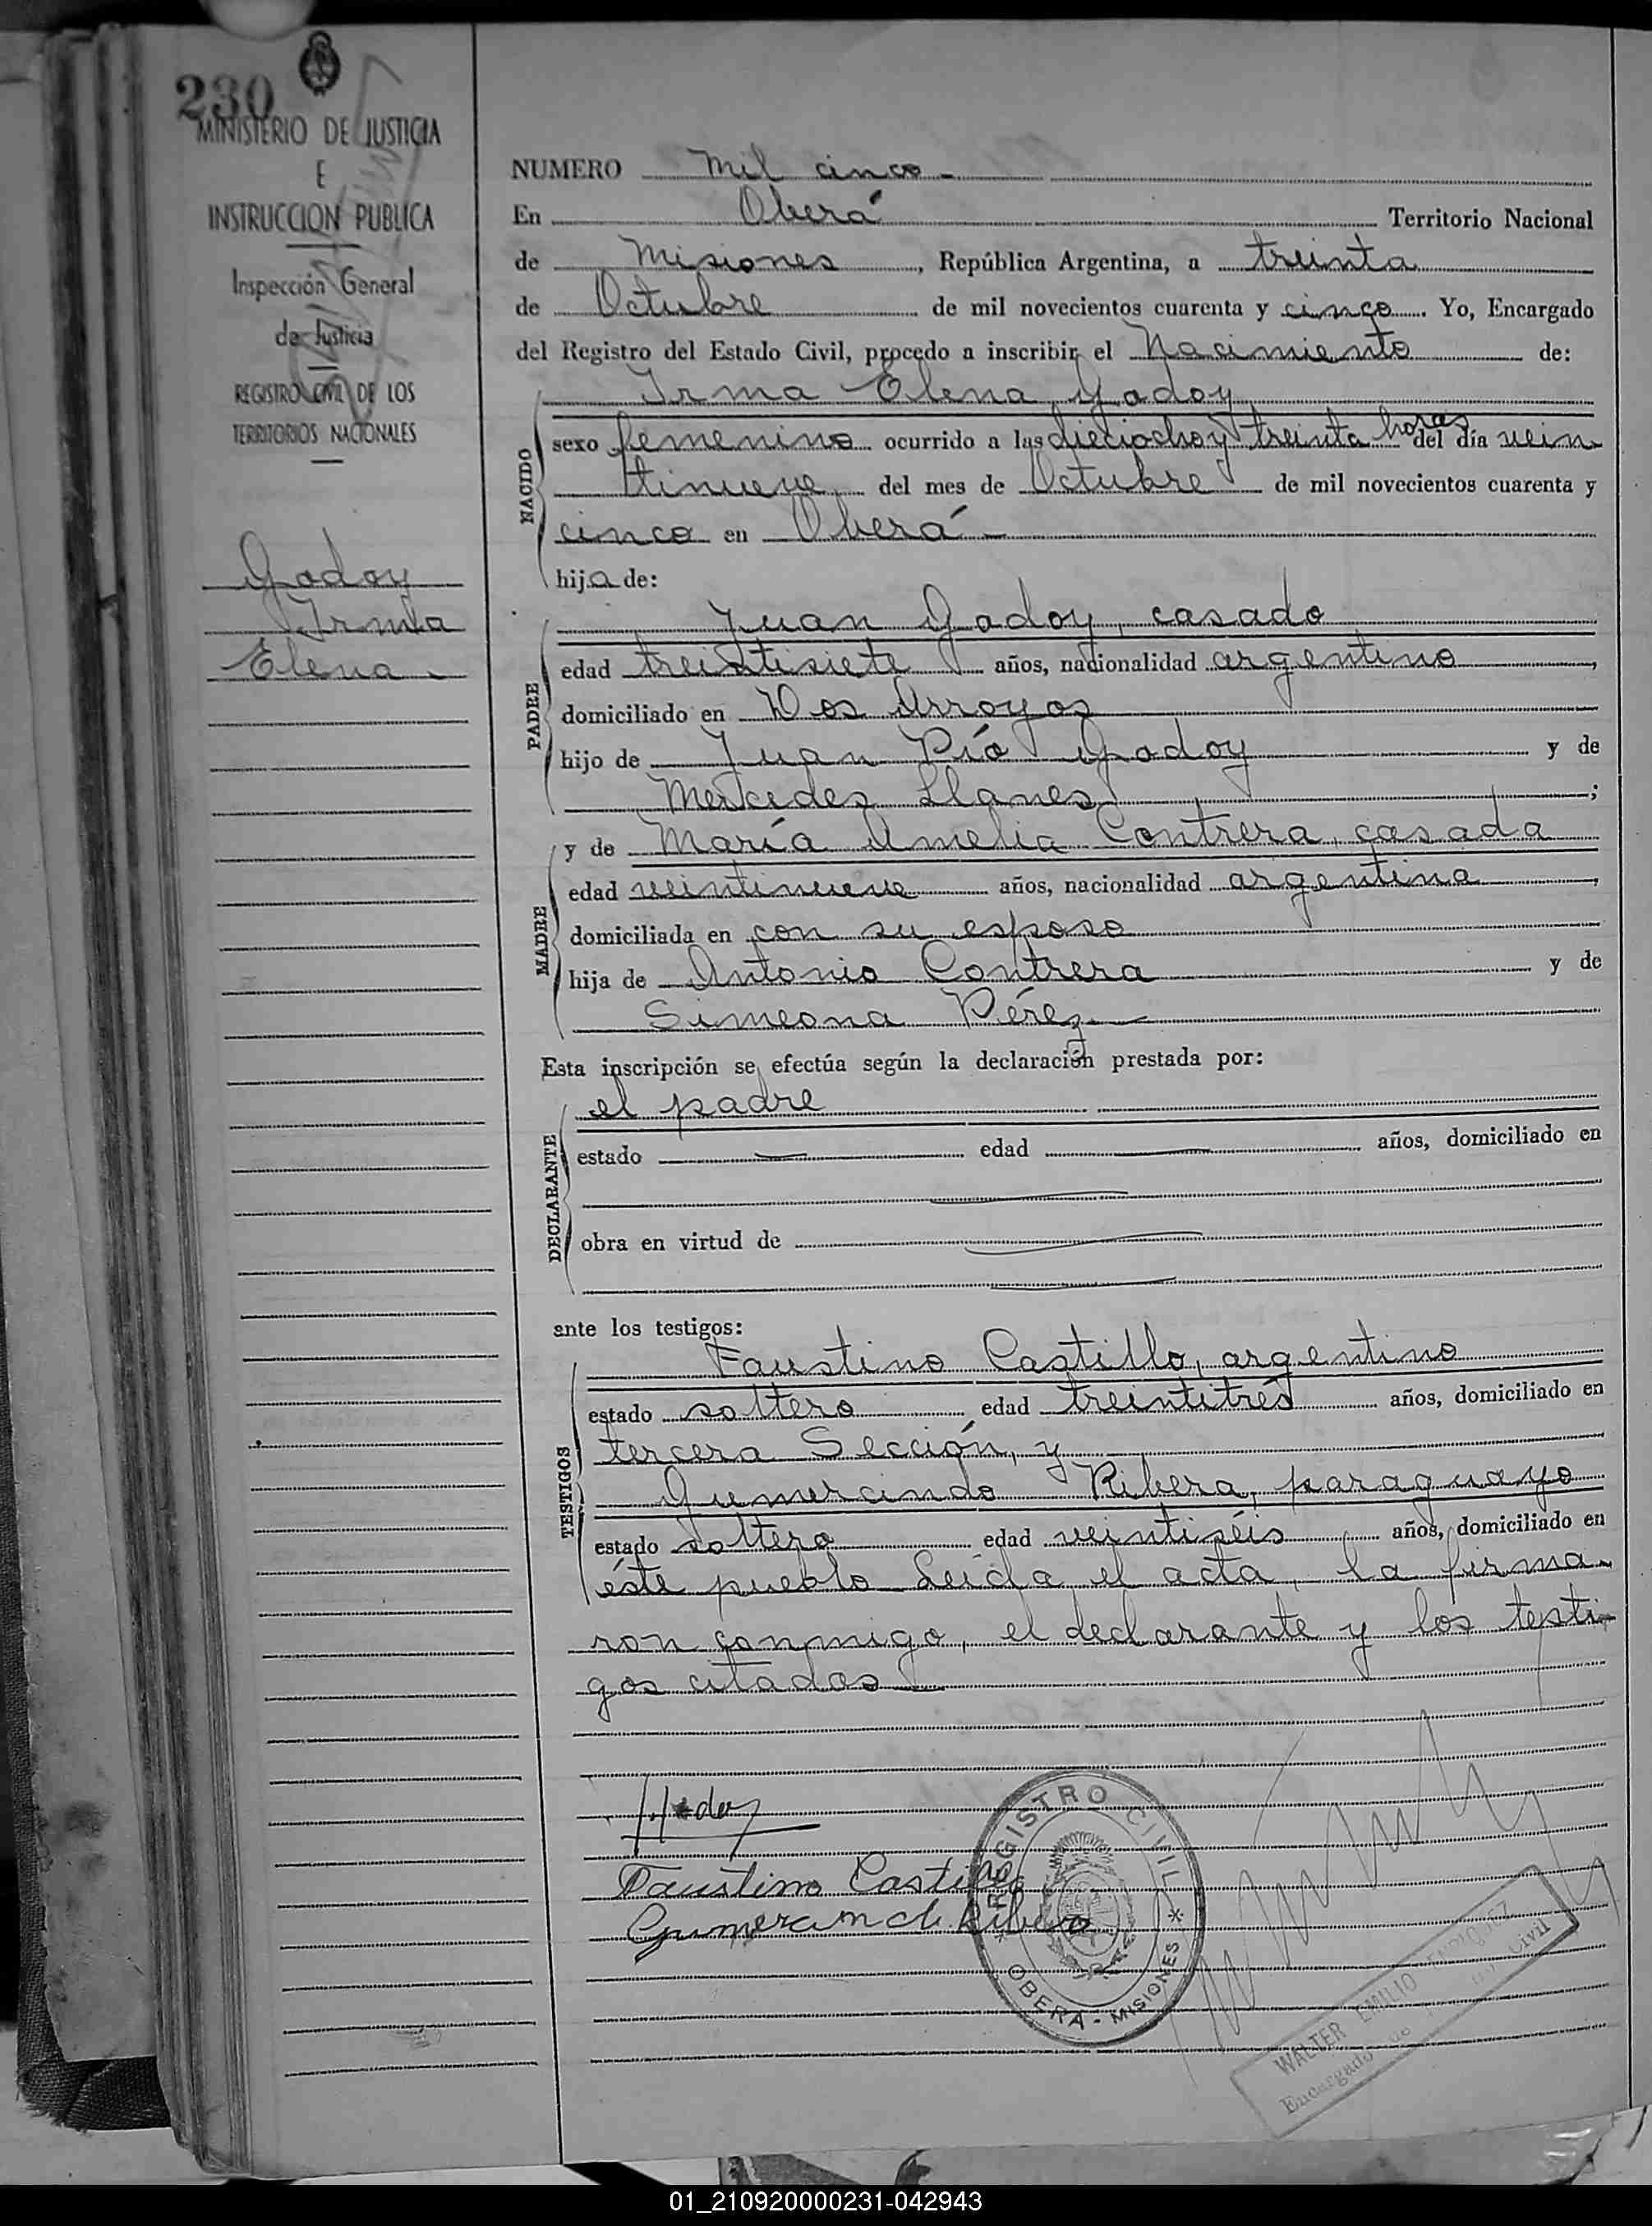 230
MINISTERIO DE JUSTICIA
E
INSTRUCCION PUBLICA
Inspección General
de Justicia
REGISTRO CIVIL DE LOS
TERRITORIOS NACIONALES
Godoy
Irma
Elena
NUMERO Mil cinco
En Oberá Territorio Nacional
de Misiones, República Argentina, a treinta
de Octubre de mil novecientos cuarenta y cinco. Yo, Encargado
del Registro del Estado Civil, procedo a inscribir el Nacimiento de:
NACIDO
Irma Elena Godoy
sexo femenino ocurrido a las dieciocho y treinta horas del día vein
tinueve del mes de Octubre de mil novecientos cuarenta y
cinco en Oberá
hija de:
PADRE
Juan Godoy, casado
edad treintisiete años, nacionalidad argentino,
domiciliado en Dos Arroyos
hijo de Juan Pío Godoy y de
Mercedes Llanes;
MADRE
y de María Amelia Contrera, casada
edad veintinueve años, nacionalidad argentina,
domiciliada en con su esposo
hija de Antonio Contrera y de
Simeona Pérez
Esta inscripción se efectúa según la declaración prestada por:
DECLARANTE
el padre
estado edad años, domiciliado en
obra en virtud de
ante los testigos:
TESTIGOS
Faustino Castillo, argentino
estado soltero edad treintitrés años, domiciliado en
tercera Sección, y
Gumercindo Ribera, paraguayo
estado soltero edad veintiséis años, domiciliado en
éste pueblo Leída el acta, la firma
ron conmigo, el declarante y los testi-
gos citados
Faustino Castillo
Ribera
REGISTRO CIVIL
OBERÁ - MISIONES
WALTER EMILIO
Encargado Civil
01_210920000231-042943